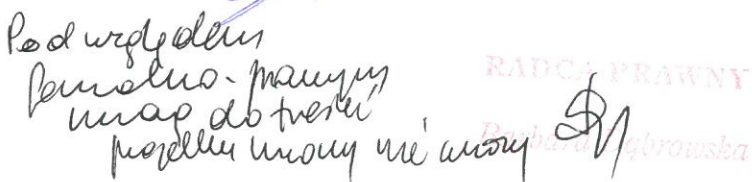 Pod względem
formalno-prawnym
uwag do treści
projektu umowy nie wnoszę
RADCA PRAWNY
Barbara Dąbrowska